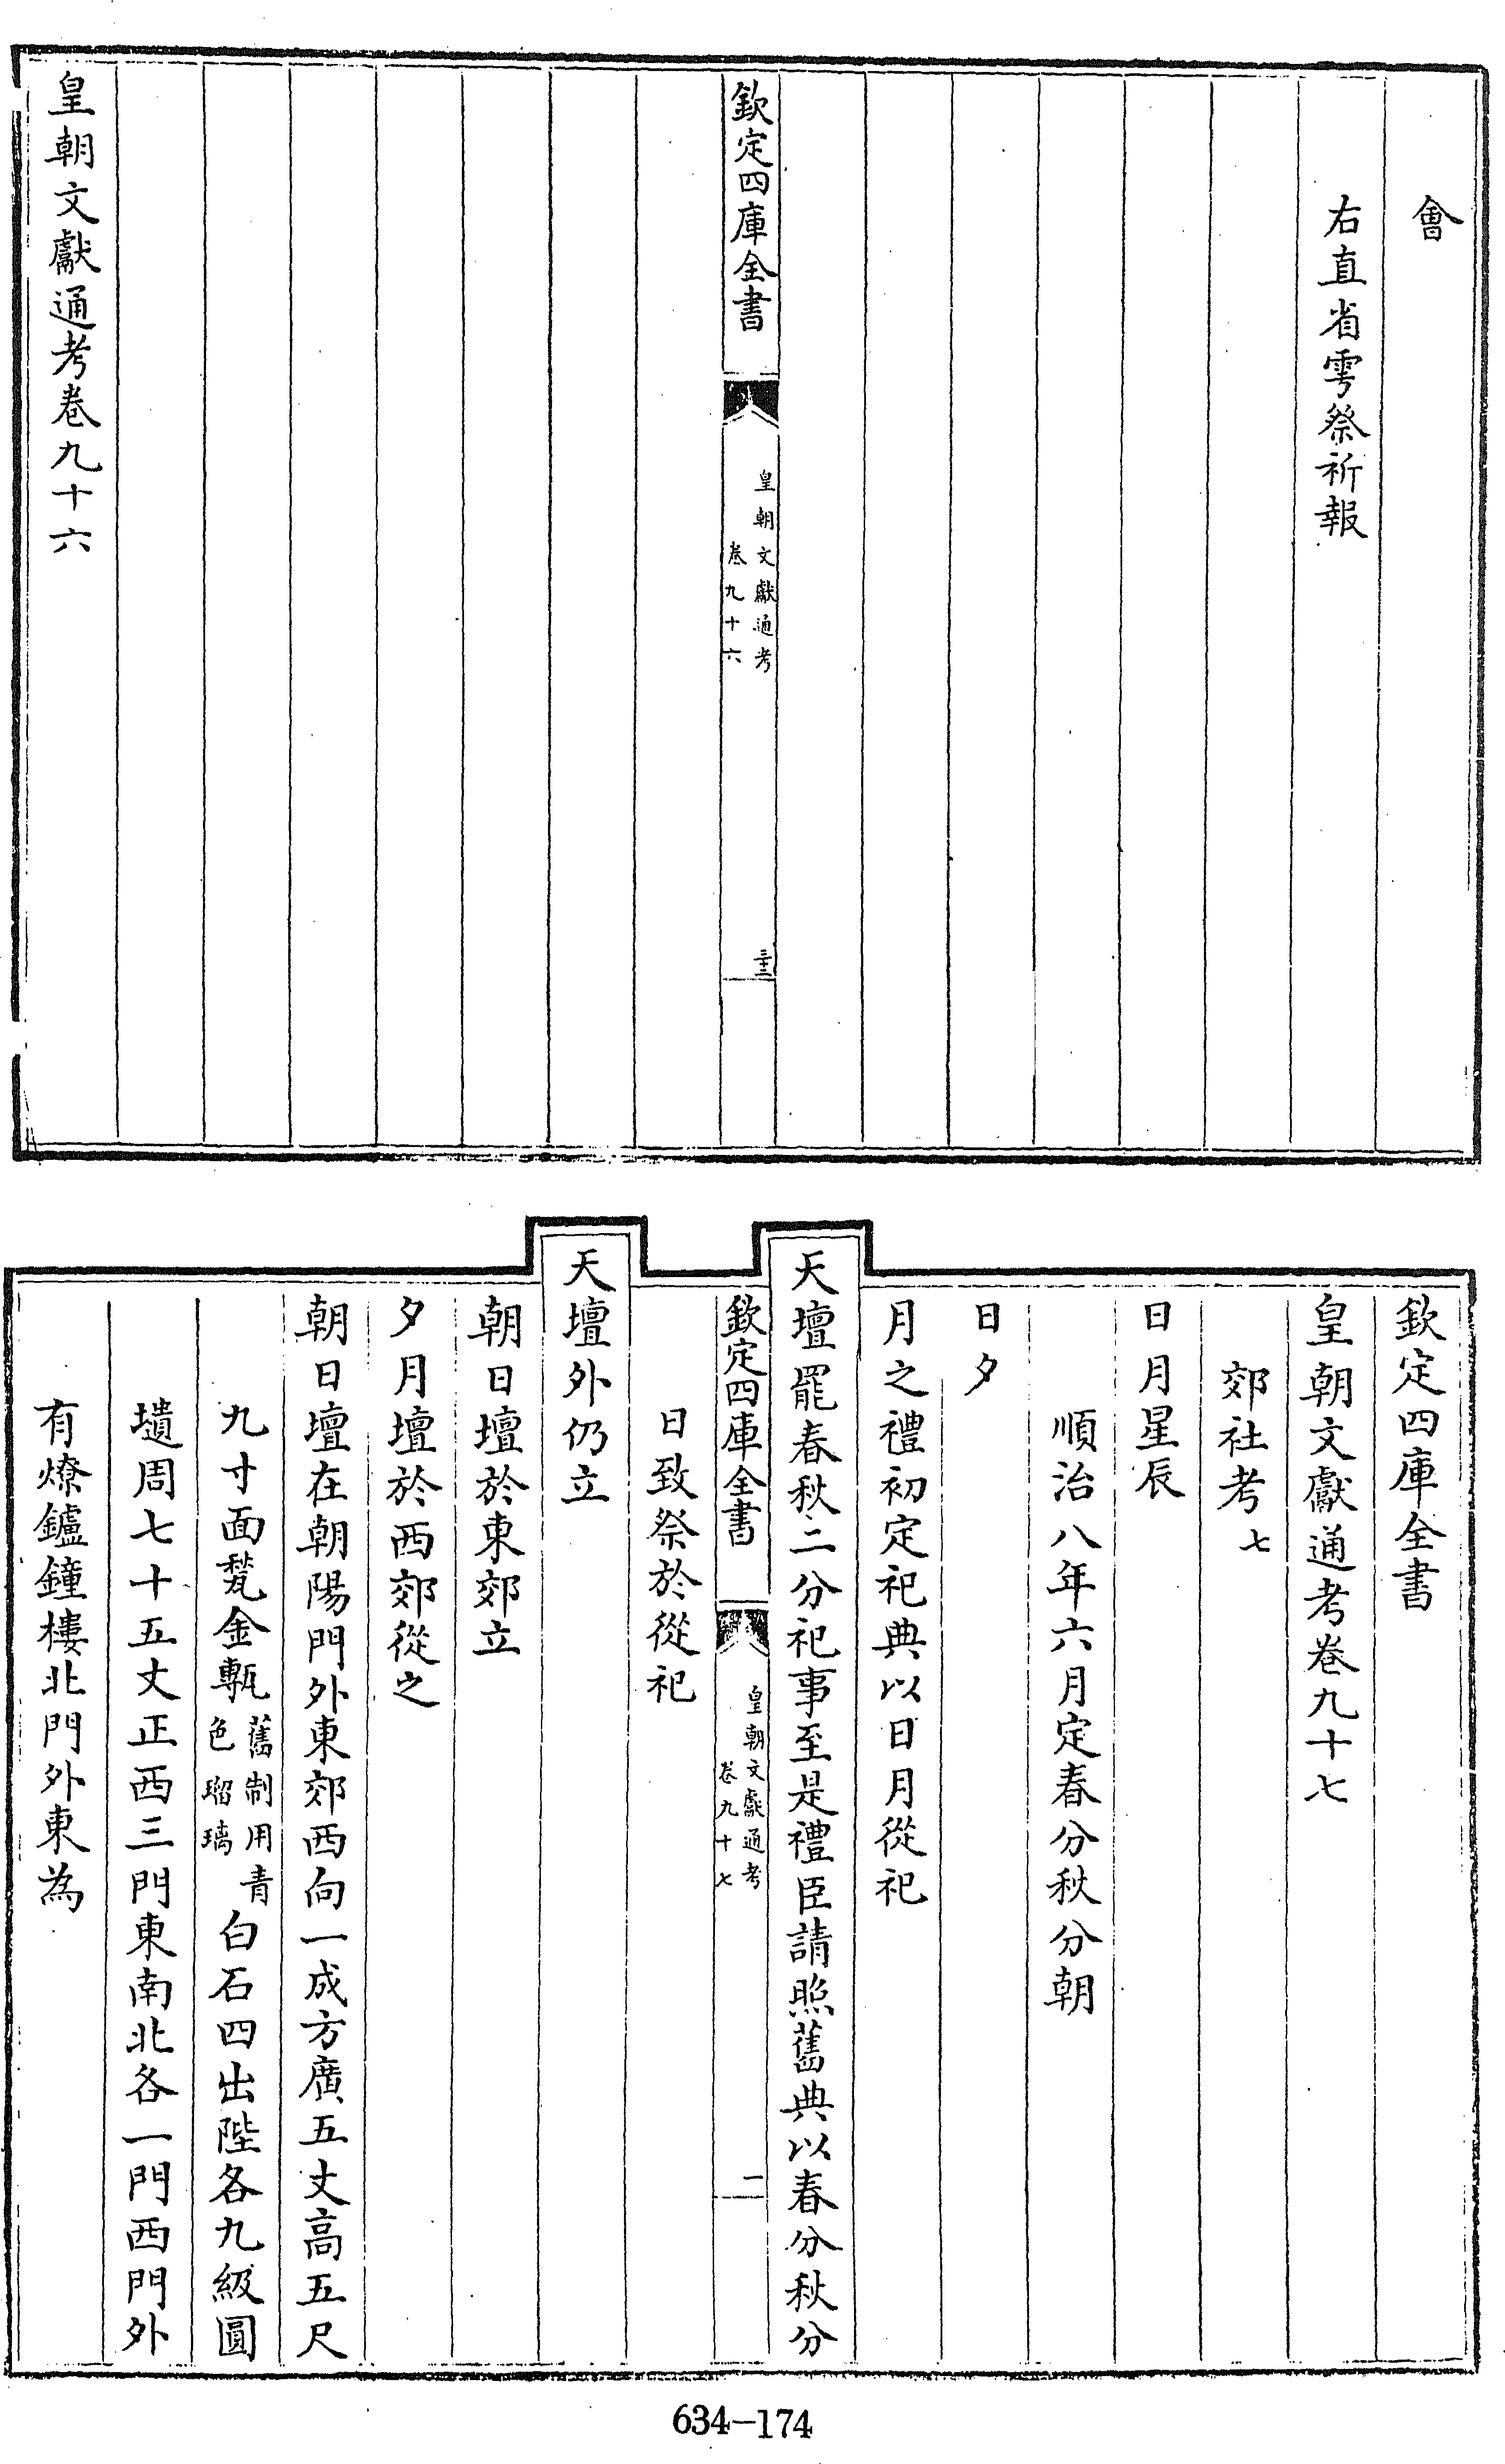 會
右直省雩祭祈報
欽定四庫全書
皇朝文獻通考
卷九十六
三十三
皇朝文獻通考卷九十六
欽定四庫全書
皇朝文獻通考卷九十七
郊社考七
日月星辰
順治八年六月定春分秋分朝
日夕
月之禮初定祀典以日月從祀
天壇罷春秋二分祀事至是禮臣請照舊典以春分秋分
欽定四庫全書
皇朝文獻通考
卷九十七
一
日致祭於從祀
天壇外仍立
朝日壇於東郊立
夕月壇於西郊從之
朝日壇在朝陽門外東郊西向一成方廣五丈高五尺
九寸面甃金甎舊制用青色瑠璃白石四出陛各九級圓
壝周七十五丈正西三門東南北各一門西門外
有燎鑪鐘樓北門外東為
634-174